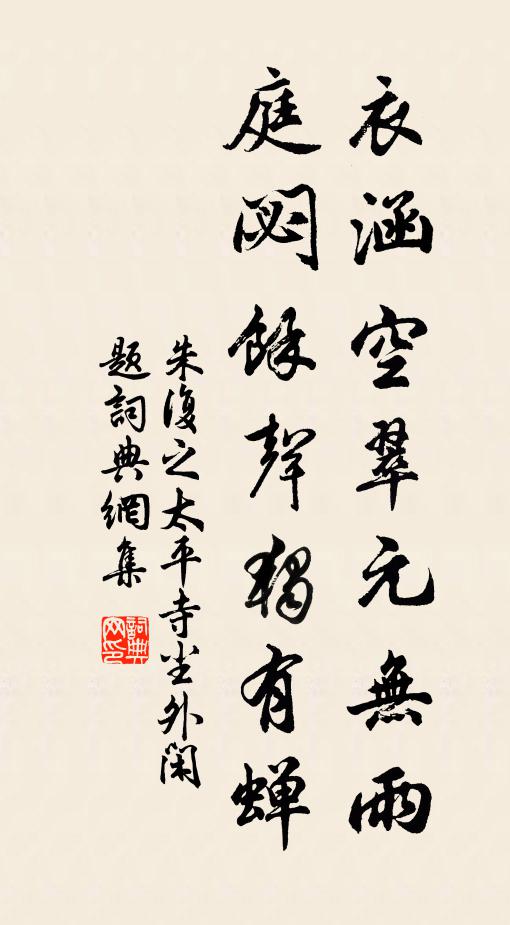 衣涵空翠元無雨
庭閟餘聲獨有蟬
朱復之太平寺尘外闲
題詞典網集
詞典网印